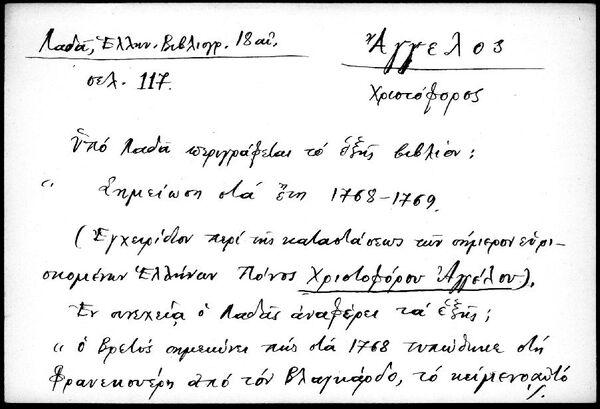 Λαδᾶ, Ἑλλην. Βιβλιογρ. 18 αἰ.
Ἄγγελος
σελ. 117.
Χριστόφορος
Ὑπό Λαδᾶ περιγράφεται τό ἑξῆς βιβλίον:
" Σημείωση στά ἔτη 1768-1769.
(Ἐγχειρίδιον περί τῆς καταστάσεως τῶν σήμερον εὑρι-
σκομένων Ἑλλήνων Πόνος Χριστοφόρου Ἀγγέλου).
Ἐν συνεχείᾳ ὁ Λαδᾶς ἀναφέρει τά ἑξῆς:
" ὁ Βρετός σημειώνει πώς στά 1768 τυπώθηκε στή
Φρανκφούρτη ἀπό τόν Βλαγκάρδο, τό κείμενο αὐτό